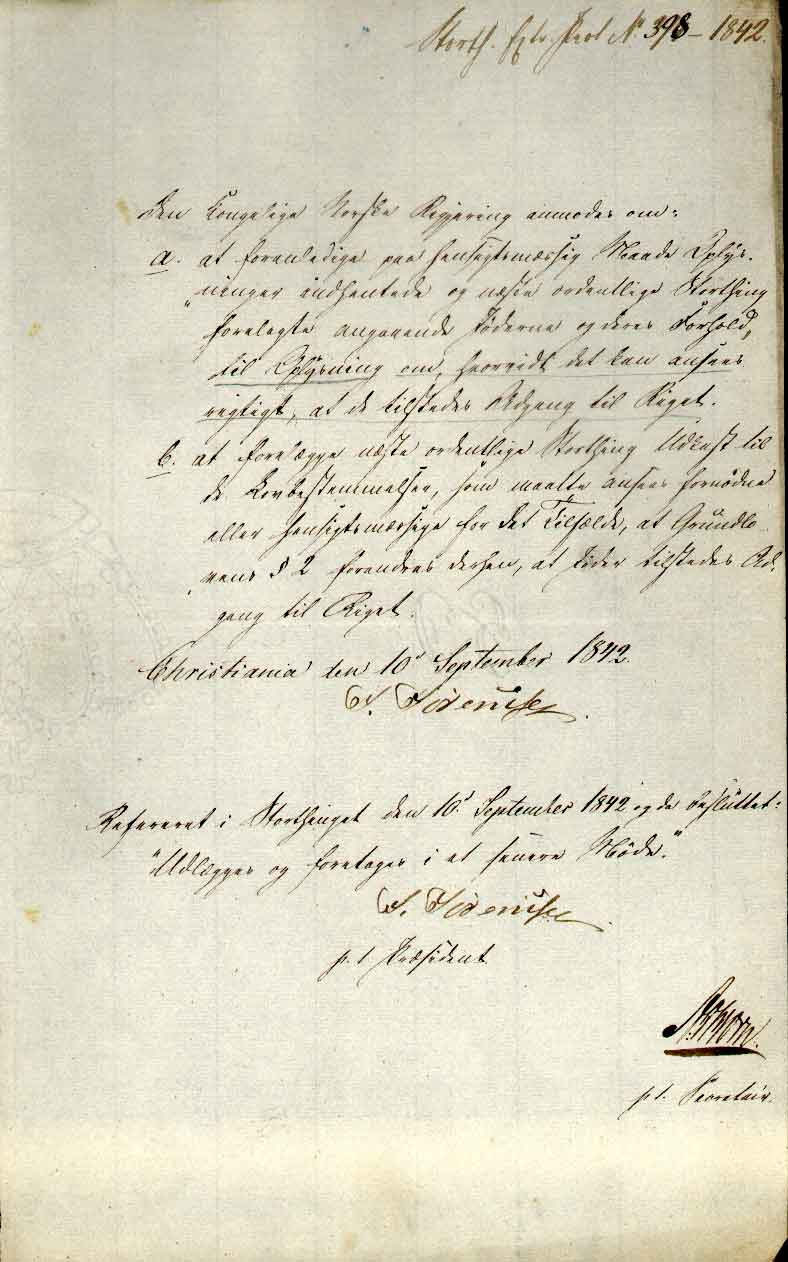 Storth. Extr. Prot № 398 – 1842.
Den Kongelige Norske Regjering anmodes om:
a. at foranledige paa hensigtsmæssig Maade Oplys-
ninger indhentede og næste ordentlige Storthing
forelagte angaaende Jøderne og deres Forhold,
til Oplysning om, hvorvidt det kan ansees
rigtigt, at de tilstedes Adgang til Riget.
b. at forelægge næste ordentlige Storthing Udkast til
de Lovbestemmelser, som maatte ansees fornødne
eller hensigtsmæssige for det Tilfælde, at Grundlo-
vens § 2 forandres derhen, at Jøder tilstedes Ad-
gang til Riget.
Christiania den 10d September 1842.
S. Sørenssen.
Refereret i Storthinget den 10d September 1842 og da besluttet:
"Udlægges og foretages i et senere Møde."
S. Sørenssen.
p. t. Præsident
p. t. Secretair.